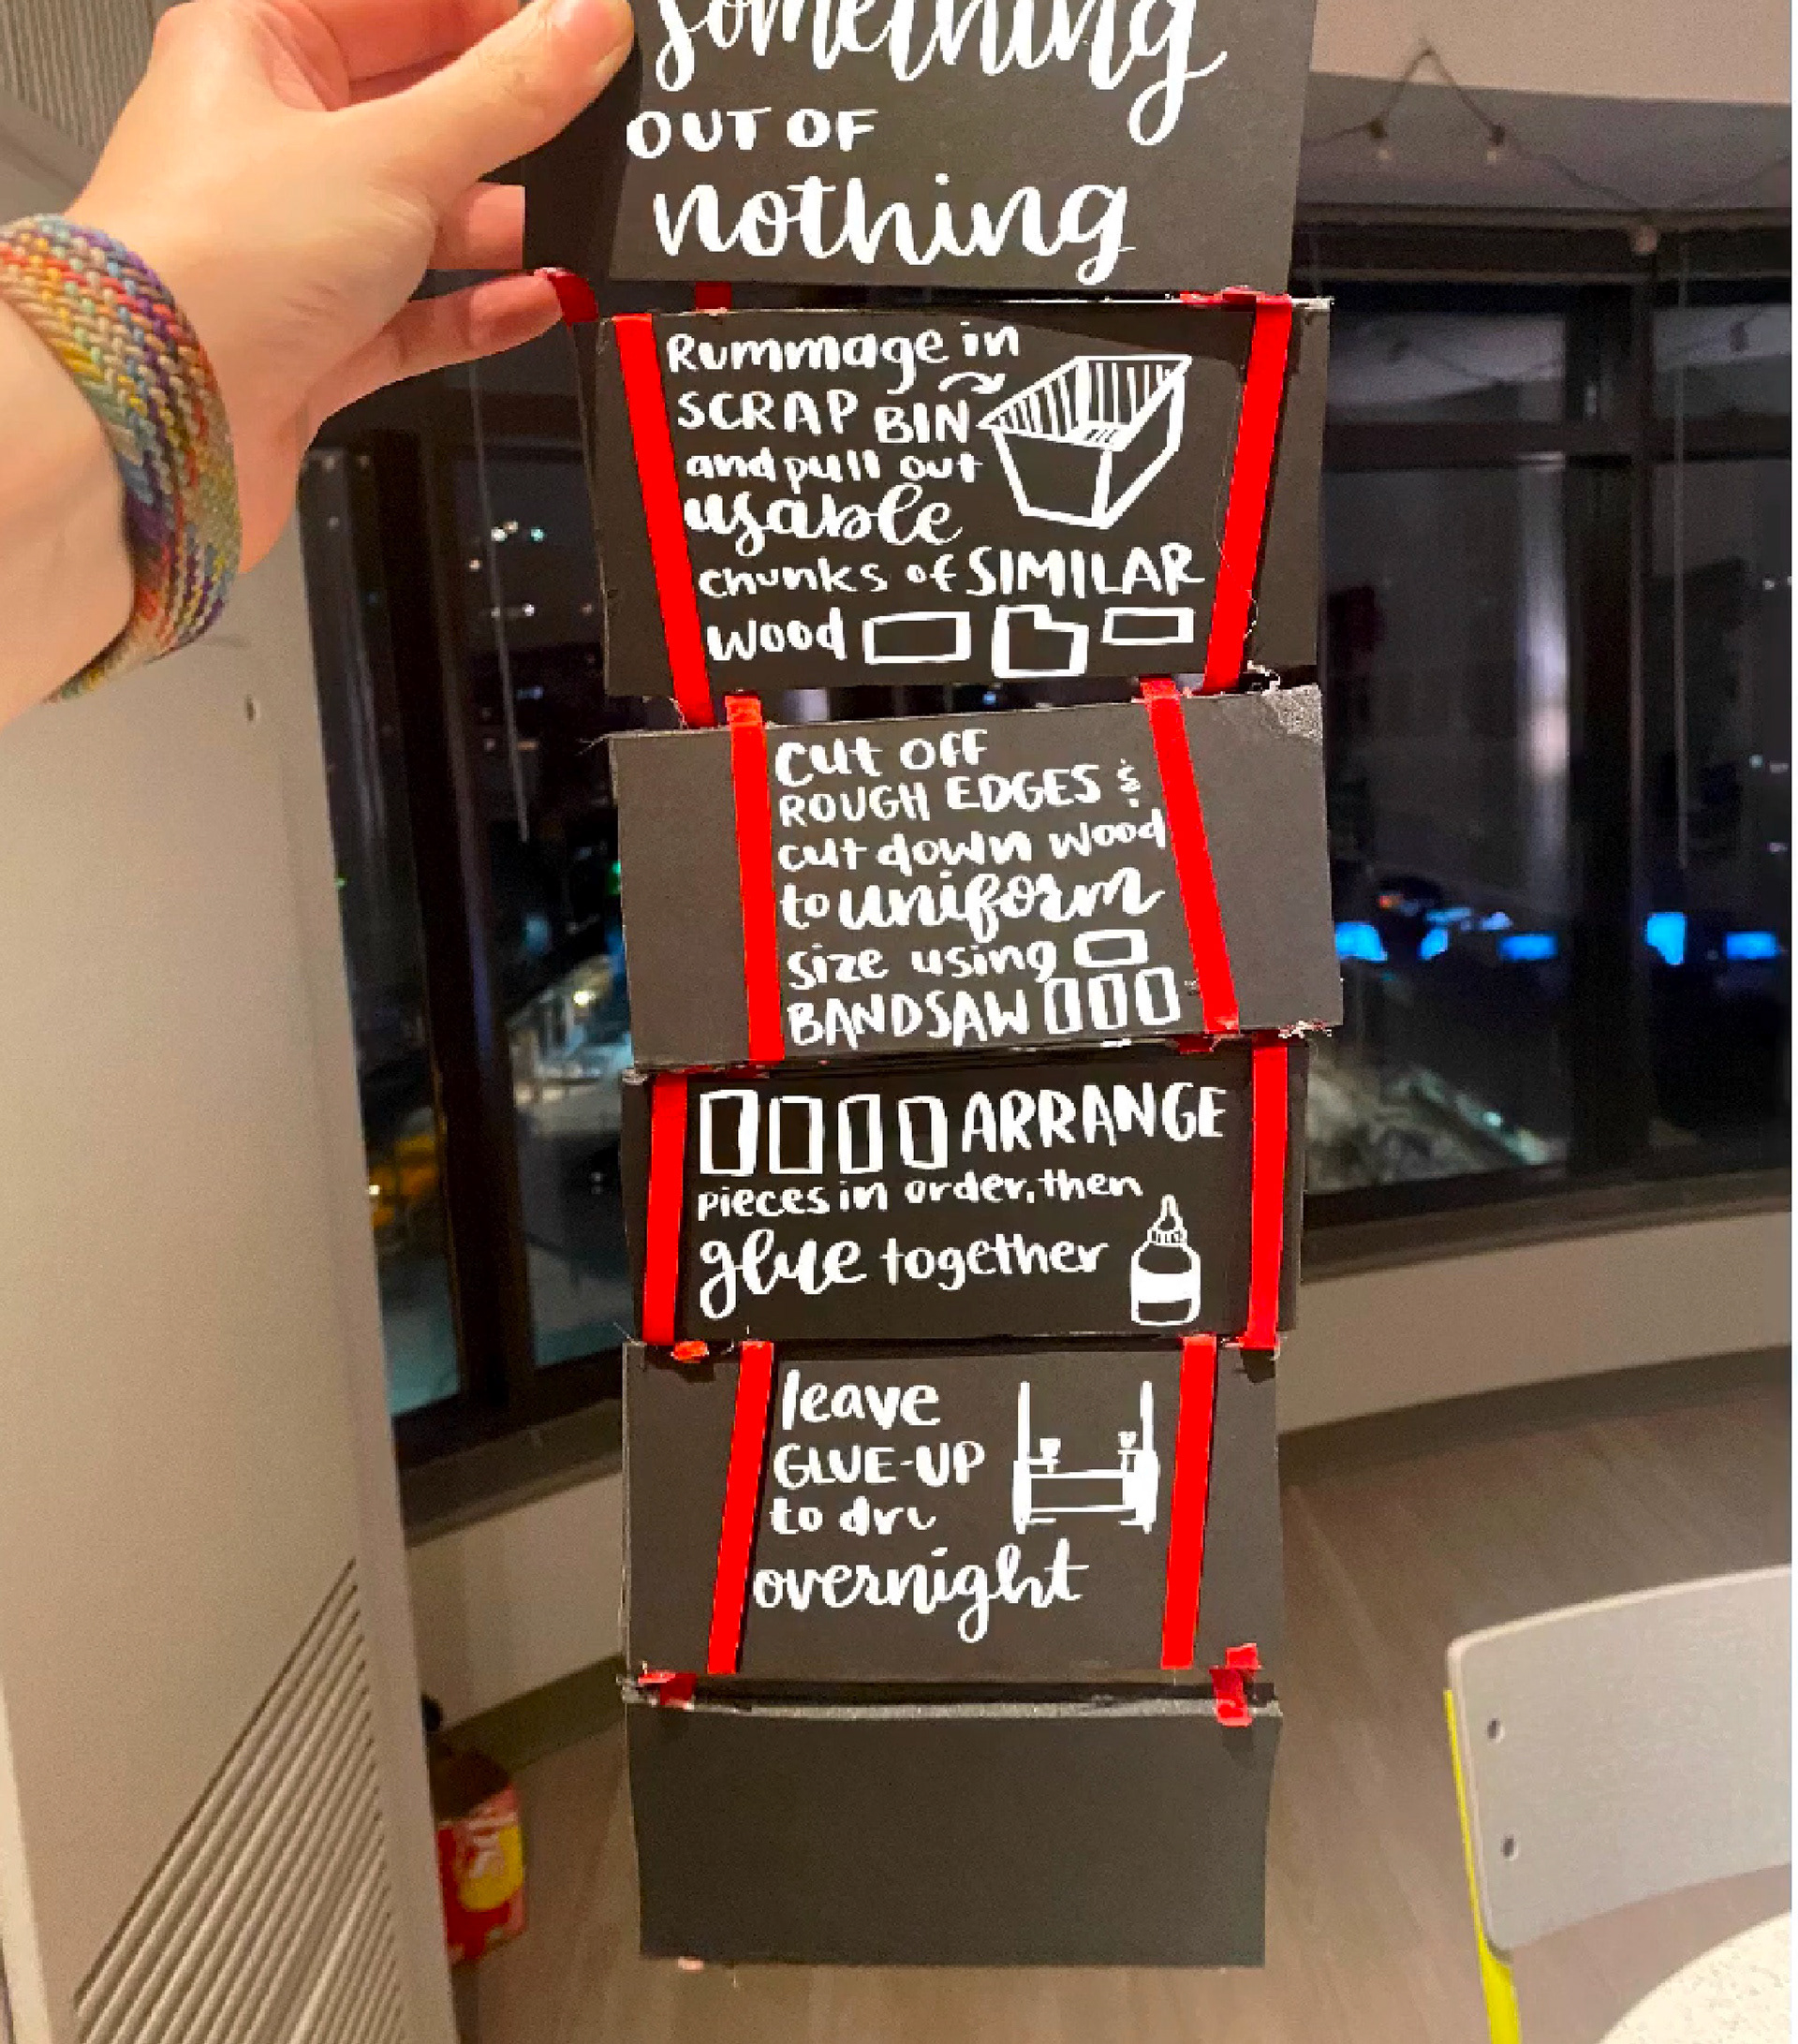 something
OUT OF
nothing
Rummage in
SCRAP BIN
and pull out
usable
chunks of SIMILAR
wood
cut off
ROUGH EDGES &
cut down wood
to uniform
size using
BANDSAW
ARRANGE
pieces in order, then
glue together
leave
GLUE-UP
to dry
overnight